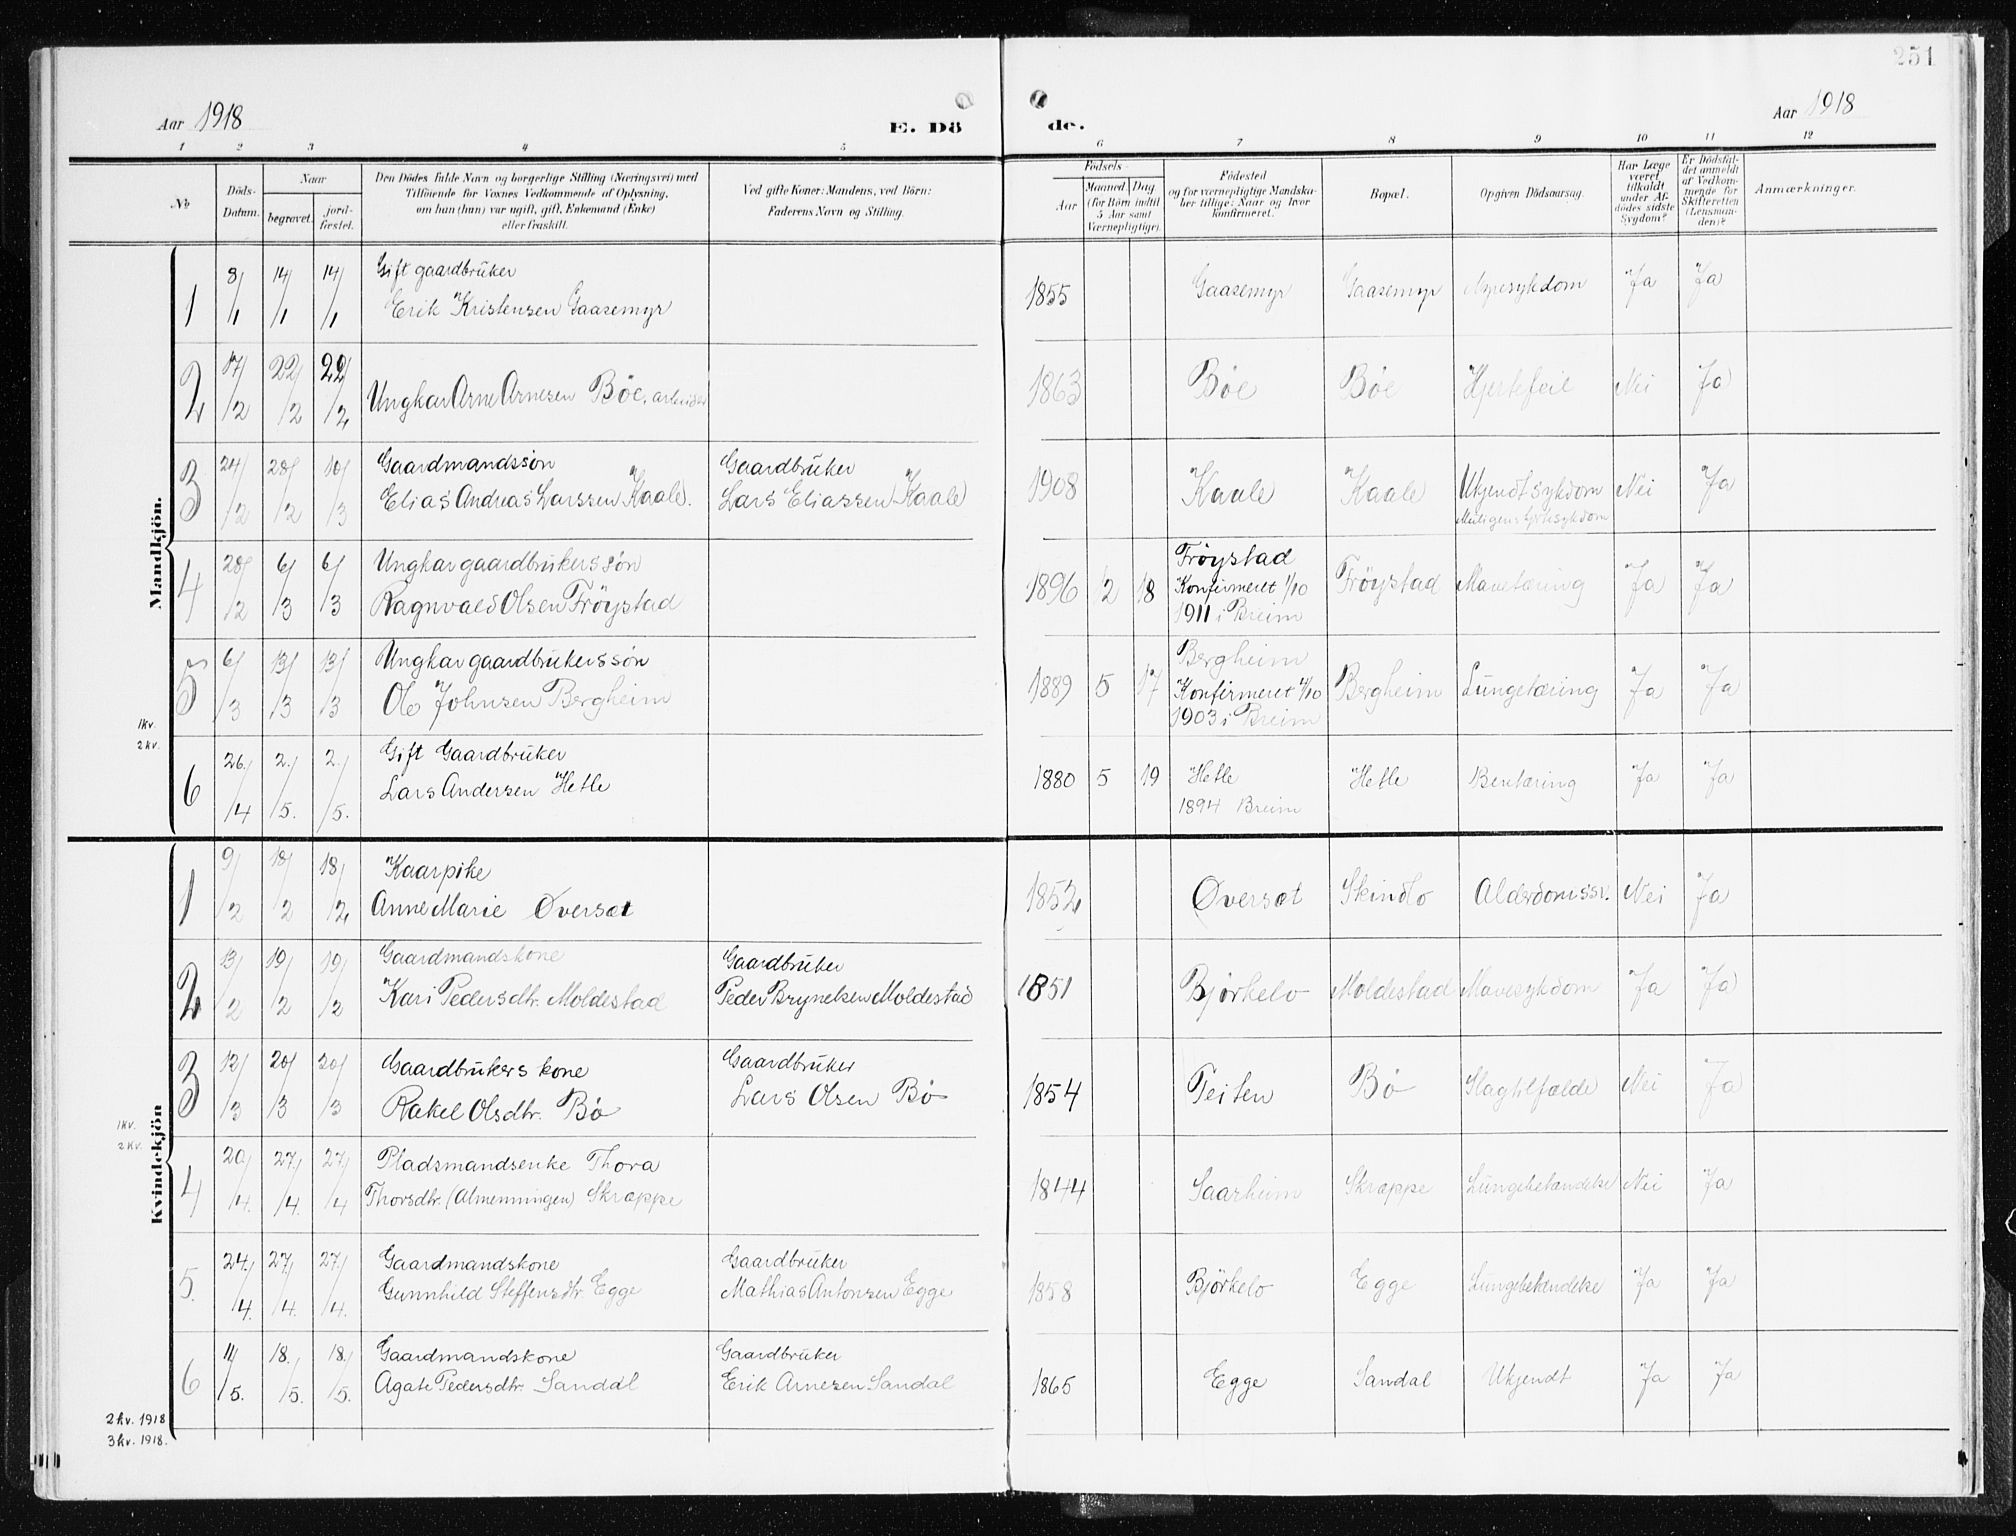 251
Aar 1918
E. Dö
de.
Aar 1918
1 2 3 4 5 6 7 8 9 10 11 12
No
Döds-Datum.
Naar
begravet.
jord-fæstet.
Den Dödes fulde Navn og borgerlige Stilling (Næringsvei) med
Tilföiende for Voxnes Vedkommende af Oplysning,
om han (hun) var ugift, gift, Enkemand (Enke)
eller fraskilt.
Ved gifte Koner: Mandens, ved Börn:
Faderens Navn og Stilling.
Födsels
Aar
Maaned Dag
(for Börn indtil
5 Aar samt
Værnepligtige).
Födested
og for værnepligtige Mandska-
ber tillige: Naar og hvor
konfirmeret.
Bopæl.
Opgiven Dödsaarsag.
Har Læge
været
tilkaldt
under Af-
dödes sidste
Sygdom?
Er Dödsfal-
det anmeldt
af Vedkom-
mende for
Skifteretten
(Lensman-
den)?
Anmærkninger.
Mandkjön.
1 8/1 14/1 14/1 Gift gaardbruker
Erik Kristensen Gaasemyr 1855 Gaasemyr Gaasemyr Nyresykdom Ja Ja
2 17/2 22/2 22/2 Ungkar Arne Arnesen Böe, arbeider 1863 Böe Böe Hjertefeil Nei Ja
3 24/2 28/2 10/3 Gaardmandssön
Elias Andreas Larssen Kaale. Gaardbruker
Lars Eliassen Kaale 1908 Kaale Kaale Ukjendt sykdom Nei Ja
Muligens hjertesykdom
4 28/2 6/3 6/3 Ungkar gaardbrukerssön
Ragnvald Olsen Fröystad 1896 2 18 Fröystad
Konfirmeret 1/10
1911 i Breim Fröystad Mavetæring Ja Ja
5 6/3 13/3 13/3 Ungkar gaardbrukerssön
Ole Johnsen Bergheim 1889 5 17 Bergheim
Konfirmeret 4/10
1903 i Breim Bergheim Lungetæring Ja Ja
1kv.
2 kv.
6 26/4 2/5. 2/5. Gift Gaardbruker
Lars Andersen Hetle 1880 5 19 Hetle
1894 Breim Hetle Bentæring Ja Ja
Kvindekjön
1 9/2 18/2 18/2 Kaarpike
Anne Marie Øversæt 1852 Øversæt Skindlo Alderdomssv. Nei Ja
2 13/2 19/2 19/2 Gaardmandskone
Kari Pedersdtr. Moldestad Gaardbruker
Peder Brynelsen Moldestad 1851 Bjørkelo Moldestad Mavesykdom Ja Ja
3 12/3 20/3 20/3 Gaardbrukers kone
Rakel Olsdtr. Bö Gaardbruker
Lars Olsen Bö 1854 Teiten Bö Slagtilfælde Nei Ja
1kv.
2 kv.
4 20/4. 27/4. 27/4 Pladsmandsenke Thora
Thorsdtr. (Almenningen) Skræppe 1844 Saarheim Skræppe Lungebetændelse Nei Ja
5. 24/4. 27/4. 27/4. Gaardmandskone
Gunnhild Steffensdtr. Egge Gaardbruker
Mathias Antonsen Egge 1858 Bjørkelo Egge Lungebetændelse Ja Ja
6 11/5. 18/5. 18/5. Gaardmandskone
Agate Pedersdtr. Sandal Gaardbruker
Erik Arnesen Sandal 1865 Egge Sandal Ukjendt Ja Ja
2 kv. 1918
3 kv. 1918.